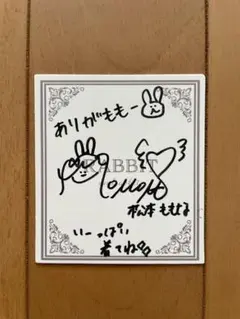 ありがももー
RABBIT
松本ももな
いーっぱい
着てね